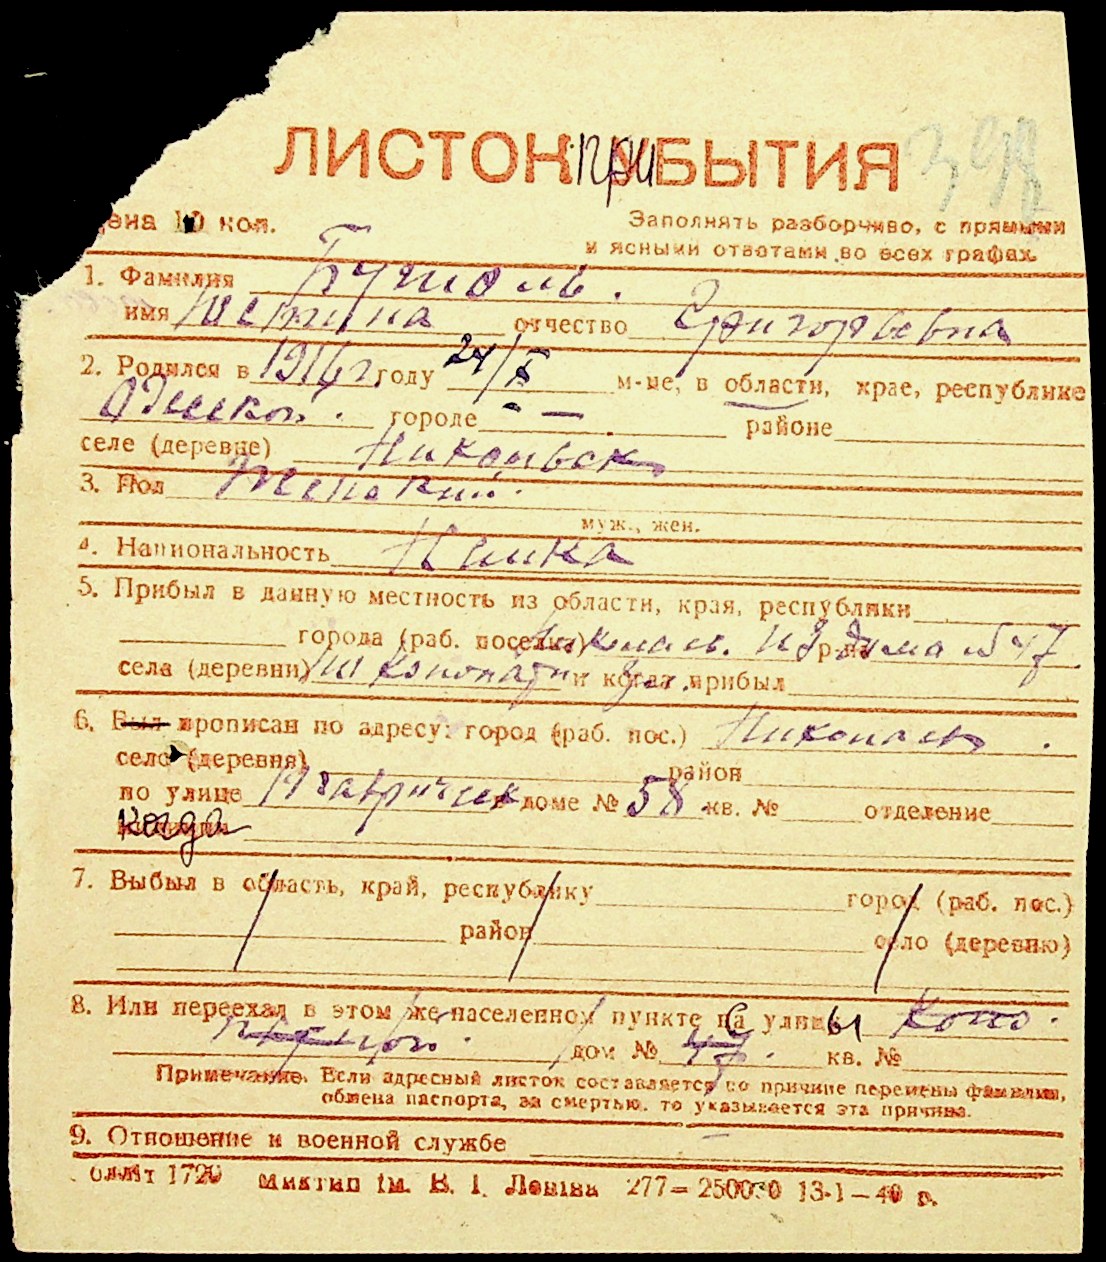 ЛИСТОК ПРИБЫТИЯ
цена 10 коп.
Заполнять разборчиво, с прямыми
и ясными ответами во всех графах.
1. Фамилия
имя отчество Григорьевна
2. Родился в 1916 г году 24/X м-це, в области, крае, республике
Одесской. городе — районе
селе (деревне) Никольск
3. Пол Женский.
муж., жен.
4. Национальность Немка
5. Прибыл в данную местность из области, края, республики
города (раб. поселка) Николаев. из р-на дома № 47
села (деревни) и когда прибыл
6. Был прописан по адресу: город (раб. пос.) Николаев.
село (деревня) район
по улице в доме № 58 кв. № отделение
когда
7. Выбыл в область, край, республику город (раб. пос.)
район село (деревню)
8. Или переехал в этом же населенном пункте с улицы
дом № 47. кв. №
Примечание. Если адресный листок составляется по причине перемены фамилии,
обмена паспорта, за смертью, то указывается эта причина.
9. Отношение к военной службе —
облліт 1720 Миктип ім. В. І. Леніна 277—250000 13-1—40 р.